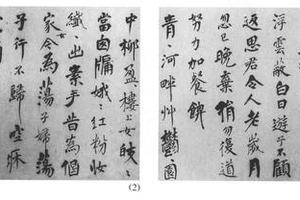 浮雲蔽白日遊子不顧
返思君令人老歲月
忽已晚棄捐勿復道
努力加餐飰
青〻河畔艸鬱〻園
中柳盈〻樓上女皎〻
當囪牖娥〻紅粉妝
纖〻出素手昔為倡
家女今為蕩子婦蕩
子行不歸空牀
(2)